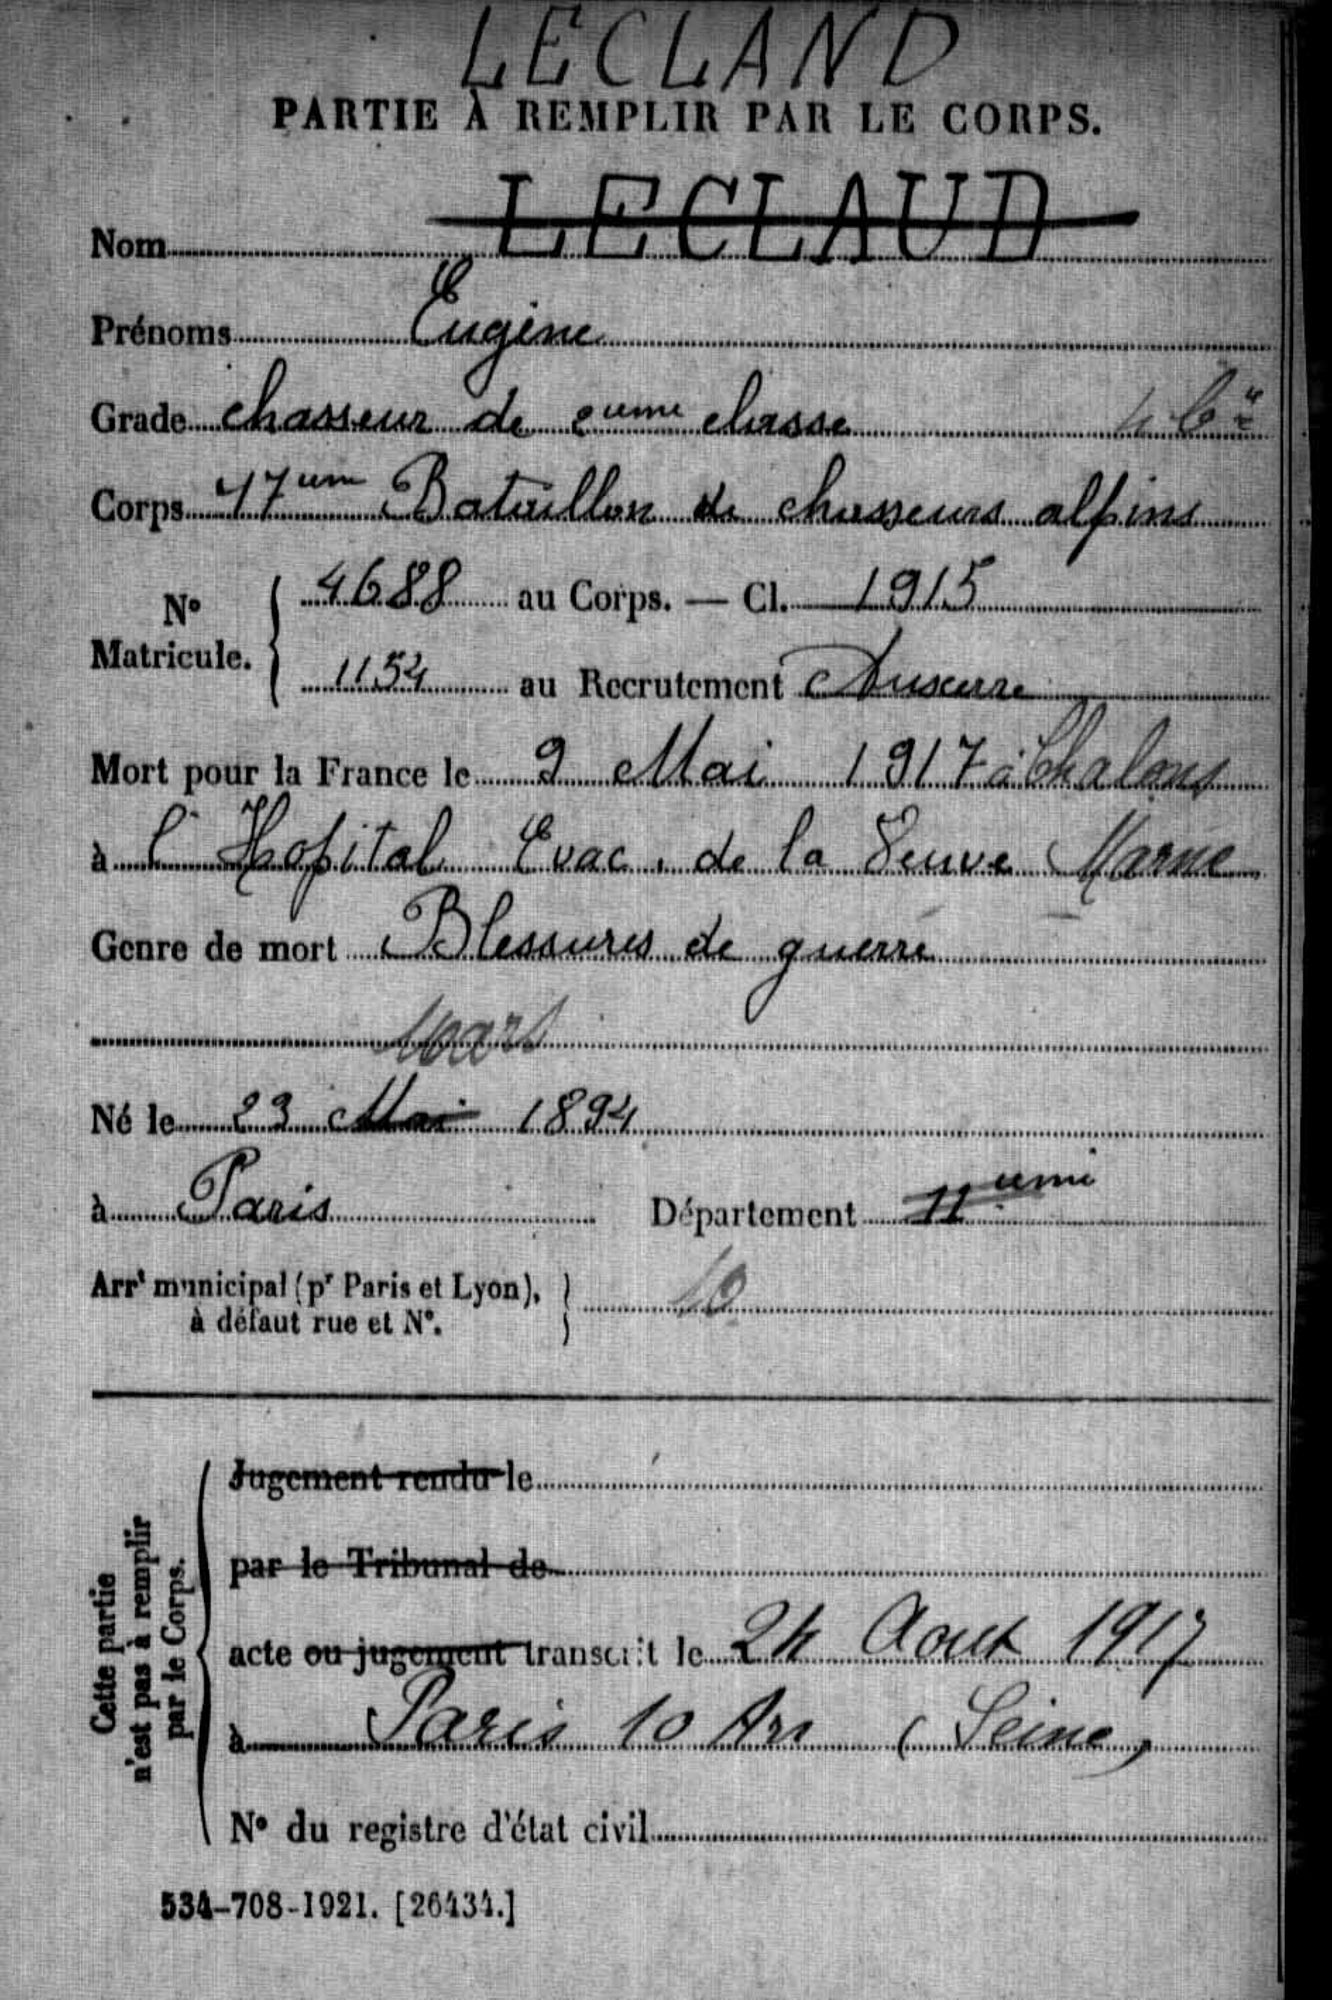 LECLAND
PARTIE À REMPLIR PAR LE CORPS.
Nom LECLAUD
Prénoms Eugène
Grade chasseur de 2eme classe
Corps 47eme Bataillon de chasseurs alpins
N° Matricule. 4688 au Corps. — Cl. 1915
1154 au Recrutement Auxerre
Mort pour la France le 9 Mai 1917 à Chalons
à l'Hopital Evac. de la Veuve Marne
Genre de mort Blessures de guerre
Mars
Né le 23 Mai 1894
à Paris Département 11eme
Arrt municipal (pr Paris et Lyon), à défaut rue et N°. 10
Cette partie n'est pas à remplir par le Corps.
Jugement rendu le
par le Tribunal de
acte ou jugement transcrit le 24 Aout 1917
à Paris 10 Arr (Seine)
N° du registre d'état civil
534-708-1921. [26434.]